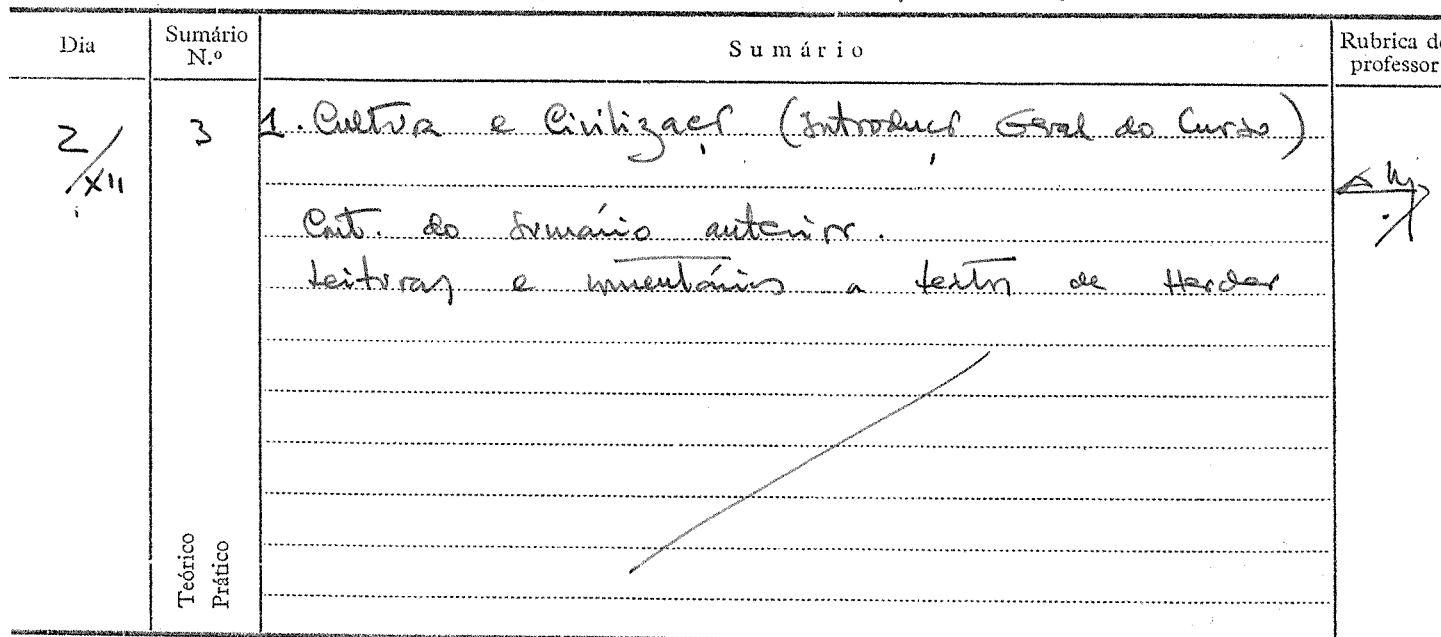 Dia
Sumário N.º
Sumário
Rubrica do professor
2/XII
3
1. Cultura e Civilização (Introdução Geral do Curso)
Cont. do sumário anterior.
Leituras e comentários a textos de Herder
Teórico
Prático